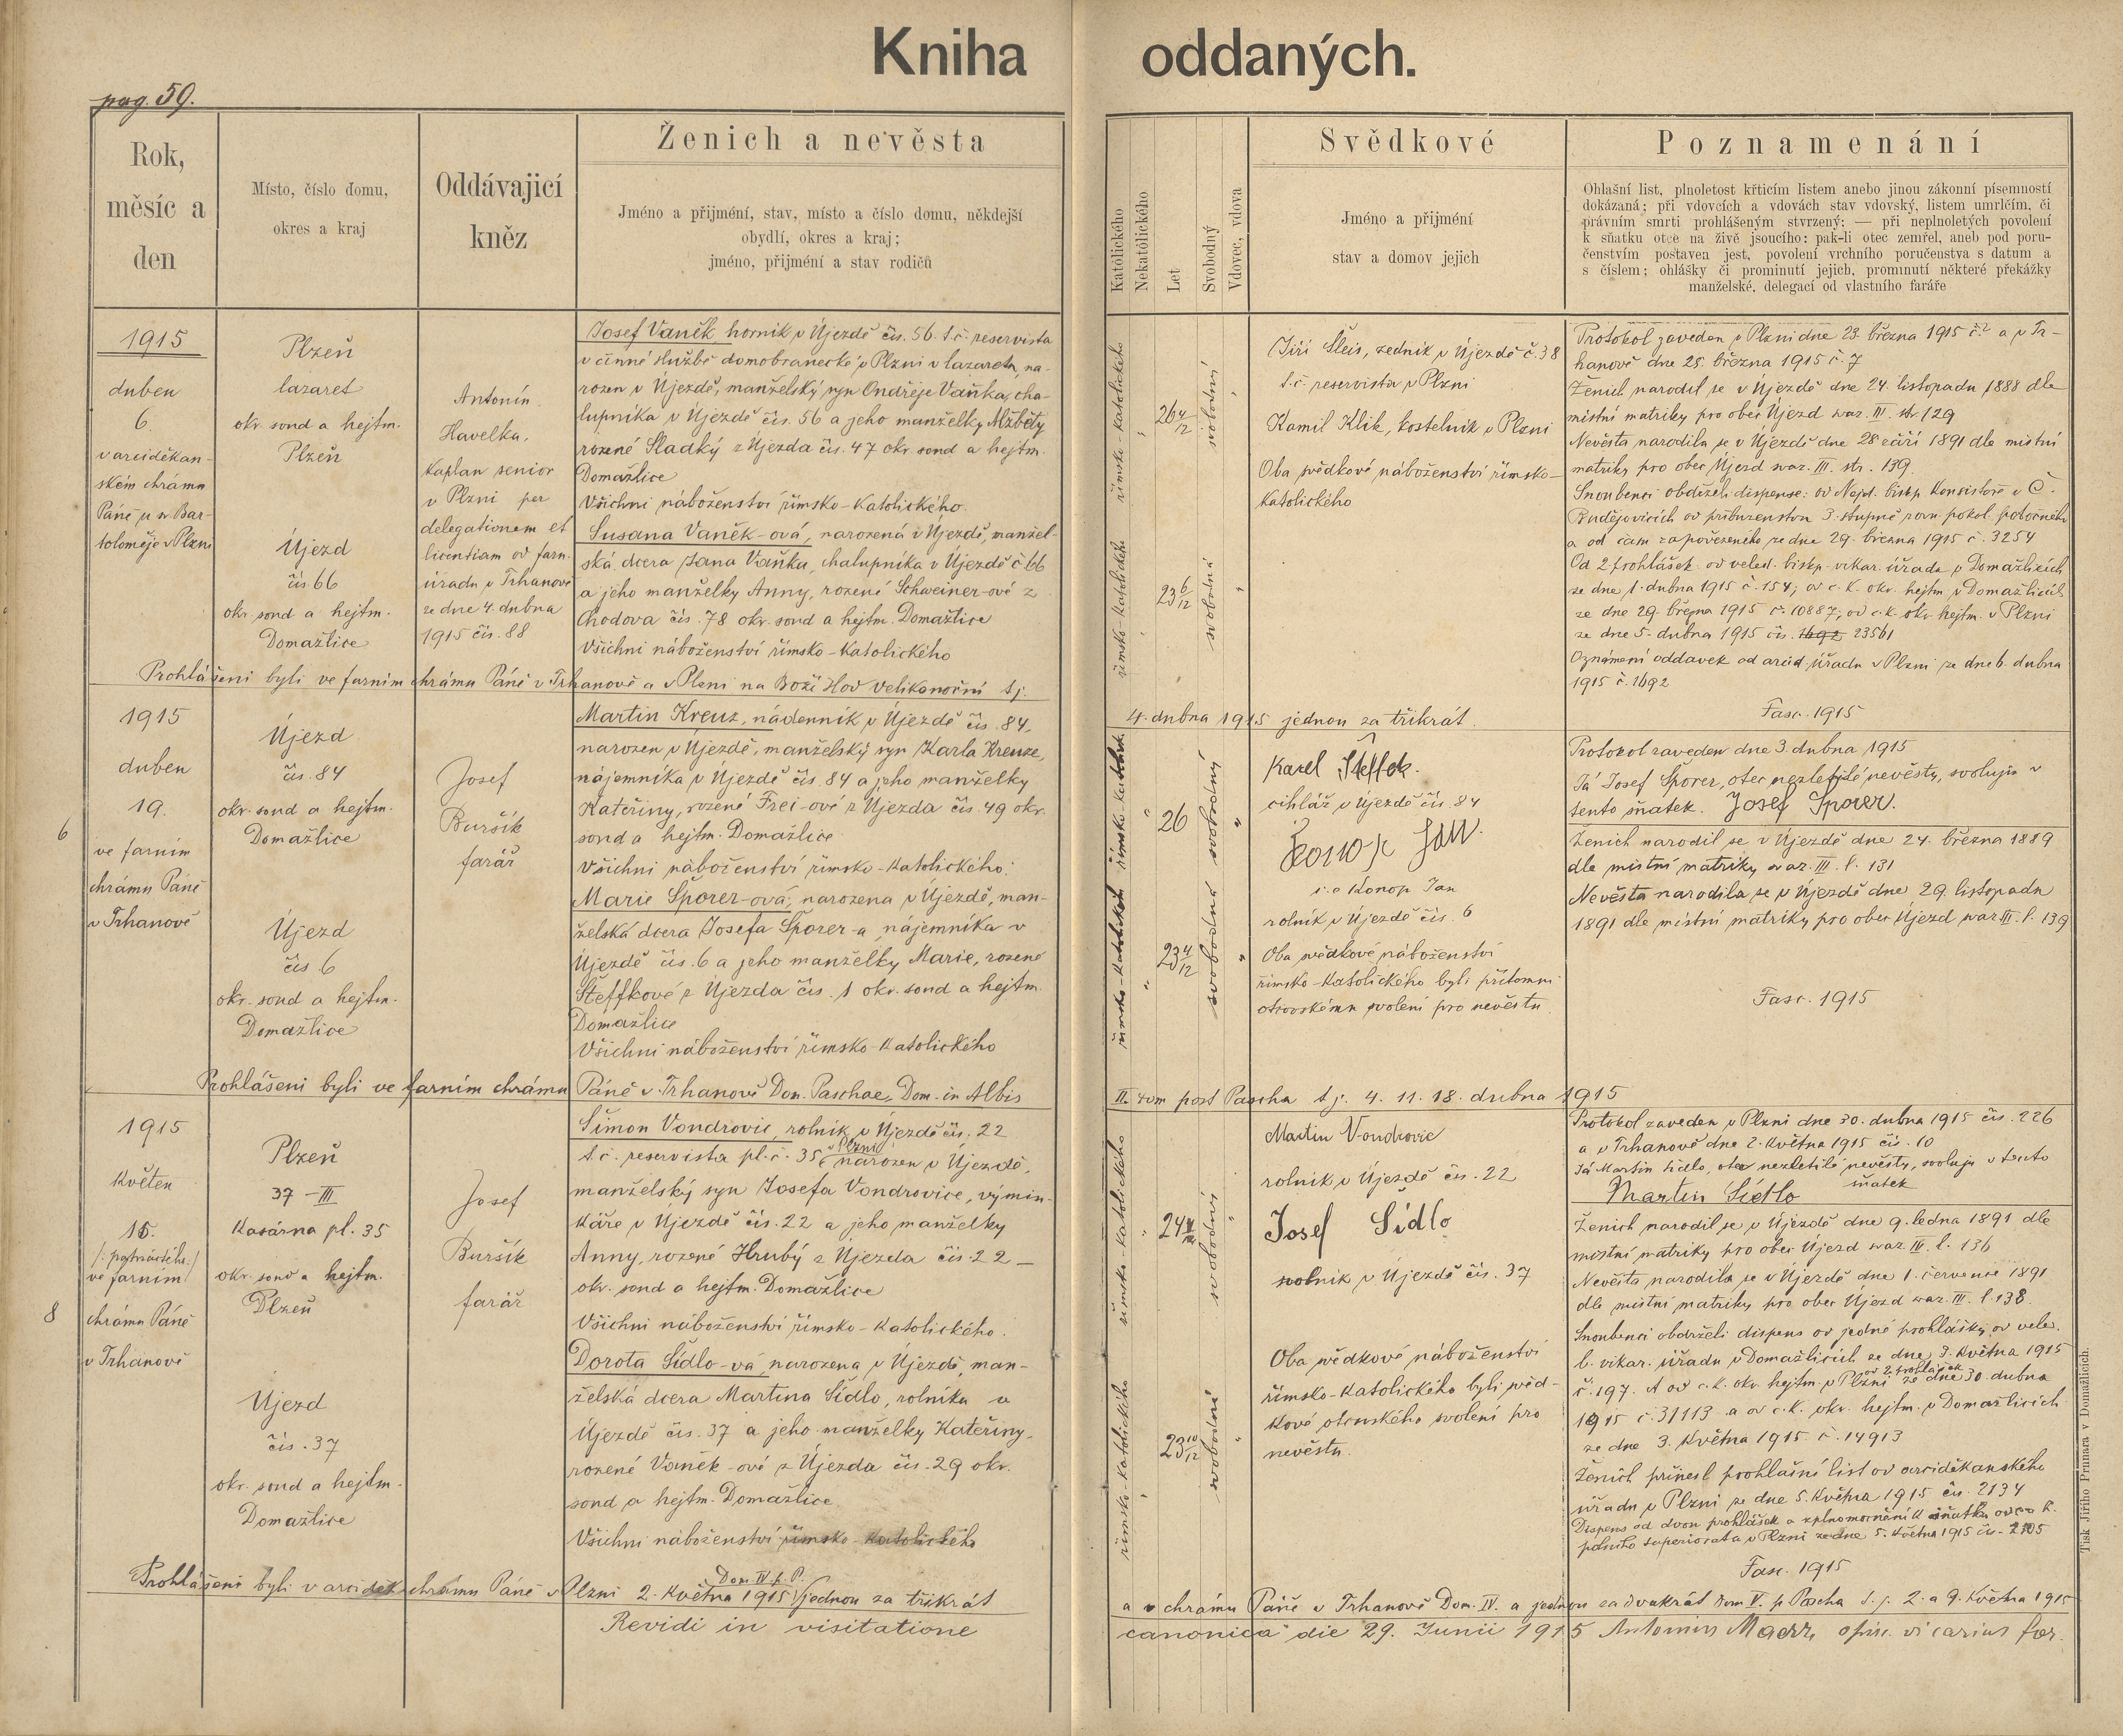 Kniha oddaných.
pag. 59.
Rok,
měsíc a
den
Místo, číslo domu,
okres a kraj
Oddávajicí
kněz
Ženich a nevěsta
Jméno a přijmení, stav, místo a číslo domu, někdejší
obydlí, okres a kraj;
jméno, přijmení a stav rodičů
Katólického
Nekatólického
Let
Svobodný
Vdovec, vdova
Svědkové
Jméno a přijmení
stav a domov jejich
Poznamenání
Ohlašní list, plnoletost křticím listem anebo jinou zákonní písemností
dokázaná; při vdovcích a vdovách stav vdovský, listem umrlčím, či
právním smrti prohlášeným stvrzený; — při neplnoletých povolení
k sňatku otce na živě jsoucího; pak-li otec zemřel, aneb pod poru-
čenstvím postaven jest, povolení vrchního poručenstva s datum a
s číslem; ohlášky či prominutí jejich, prominutí některé překážky
manželské, delegací od vlastního faráře
1915
duben
6.
v arciděkan-
ském chrámu
Páně u sv. Bar-
toloměje v Plzni
Plzeň
lazaret
okr. soud a hejtm.
Plzeň
Újezd
čis 66
okr. soud a hejtm.
Domažlice
Antonín
Havelka,
kaplan senior
v Plzni per
delegationem et
licentiam od farn.
úřadu v Trhanově
ze dne 4. dubna
1915 čís. 88
Josef Vaněk horník v Újezdě čis. 56. t. č. reservista
v činné službě domobranecké v Plzni v lazaretu, na-
rozen v Újezdě, manželský syn Ondřeje Vaňka, cha-
lupníka v Újezdě čis. 56 a jeho manželky Alžběty
rozené Sladký z Újezda čis. 47 okr. soud a hejtm.
Domažlice
Všichni náboženství římsko-katolického.
Susana Vaněk-ová, narozená v Újezdě, manžel-
ská dcera Jana Vaňka, chalupníka v Újezdě č 66
a jeho manželky Anny, rozené Schweiner-ové z
Chodova čís. 78 okr. soud a hejtm. Domažlice
Všichni náboženství římsko-katolického
římsko-katolického
26 4/12
svobodný
římsko-katolického
23 6/12
svobodná
Jiří Šleis, zedník v Újezdě č. 38
t. č. reservista v Plzni
Kamil Klik, kostelník v Plzni
Oba svědkové náboženství římsko-
katolického
Protokol zaveden v Plzni dne 23. března 1915 č.² a v Tr-
hanově dne 25. března 1915 č. 7
Ženich narodil se v Újezdě dne 24. listopadu 1888 dle
místní matriky pro obec Újezd svaz. III. str 129
Nevěsta narodila se v Újezdě dne 28 září 1891 dle místní
matriky pro obec Újezd svaz. III. str. 139.
Snoubenci obdrželi dispense: od Nejd. biskp. Konsistoře v Č.
Budějovicích od příbuzenstva 3. stupně rovn. pokol. pobočného
a od času zapovězeného ze dne 29. března 1915 č. 3254
Od 2 prohlášek od veled. biskp. vikar. úřadu v Domažlicích
ze dne 1. dubna 1915 č. 154; od c. k. okr. hejtm. v Domažlicích
ze dne 29. března 1915 č. 10887; od c. k. okr. hejtm. v Plzni
ze dne 5. dubna 1915 čis. 1692 23561
Oznámení oddavek od arcid. úřadu v Plzni ze dne 6. dubna
1915 č. 1692
Fasc. 1915
Prohlášeni byli ve farním chrámu Páně v Trhanově a v Plzni na Boží Hod Velikonoční t. j.
4. dubna 1915 jednou za třikrát.
6
1915
duben
19.
ve farním
chrámu Páně
v Trhanově
Újezd
čis. 84
okr. soud a hejtm.
Domažlice
Újezd
čis. 6
okr. soud a hejtm.
Domažlice
Josef
Buršík
farář
Martin Kreuz, nádenník v Újezdě čis. 84,
narozen v Újezdě, manželský syn Karla Kreuze,
nájemníka v Újezdě čis. 84 a jeho manželky
Kateřiny, rozené Frei-ové z Újezda čis. 49 okr.
soud a hejtm. Domažlice
Všichni náboženství římsko-katolického.
Marie Šporer-ová, narozena v Újezdě, man-
želská dcera Josefa Šporer-a, nájemníka v
Újezdě čis. 6 a jeho manželky Marie, rozené
Šteffkové z Újezda čis. 1 okr. soud a hejtm.
Domažlice
Všichni náboženství římsko-katolického
26
svobodný
23 4/12
svobodná
Karel Šteffek.
cihlář v Újezdě čis. 84
Konop Jan
i. e Konop Jan
rolník v Újezdě čis. 6
Oba svědkové náboženství
římsko-katolického byli přítomni
otcovskému svolení pro nevěstu.
Protokol zaveden dne 3. dubna 1915
Já Josef Šporer, otec nezletilé nevěsty, svoluji v
tento sňatek. Josef Sporer.
Ženich narodil se v Újezdě dne 24. března 1889
dle místní matriky svaz. III. l. 131
Nevěsta narodila se v Újezdě dne 29. listopadu
1891 dle místní matriky pro obec Újezd svaz III. l. 139
Fasc. 1915
Prohlášeni byli ve farním chrámu Páně v Trhanově Dom. Paschae, Dom. in Albis
II. dom post Pascha t. j. 4. 11. 18. dubna 1915
8
1915
květen
15.
/: patnáctého :/
ve farním
chrámu Páně
v Trhanově
Plzeň
37-III
Kasárna pl. 35
okr. soud a hejtm.
Plzeň
Újezd
čis. 37
okr. soud a hejtm.
Domažlice
Josef
Buršík
farář
Šimon Vondrovic, rolník v Újezdě čis. 22
t. č. reservista pl. č. 35 v Plzni narozen v Újezdě,
manželský syn Josefa Vondrovice, výmin-
káře v Újezdě čis. 22 a jeho manželky
Anny, rozené Hrubý z Újezda čis. 22 –
okr. soud a hejtm. Domažlice
Všichni náboženství římsko-katolického.
Dorota Sídlo-vá, narozena v Újezdě, man-
želská dcera Martina Sídlo, rolníka v
Újezdě čis. 37 a jeho manželky Kateřiny,
rozené Vaněk-ové z Újezda čis. 29 okr.
soud a hejtm. Domažlice.
Všichni náboženství římsko-katolického
římsko-katolického
24
svobodný
římsko-katolického
23 10/12
svobodná
Martin Vondrovic
rolník v Újezdě čis. 22
Josef Sídlo
rolník v Újezdě čis. 37
Oba svědkové náboženství
římsko-katolického byli svěd-
kové otcovského svolení pro
nevěstu.
Protokol zaveden v Plzni dne 30. dubna 1915 čis. 226
a v Trhanově dne 2. května 1915 čis. 10
Já Martin Sídlo, otec nezletilé nevěsty, svoluji v tento
sňatek
Martin Sídlo
Ženich narodil se v Újezdě dne 9. ledna 1891 dle
místní matriky pro obec Újezd svaz. III. l. 136
Nevěsta narodila se v Újezdě dne 1. července 1891
dle místní matriky pro obec Újezd svaz. III. l. 138.
Snoubenci obdrželi dispens od jedné prohlášky od veled.
b. vikar. úřadu v Domažlicích ze dne 3. května 1915
od 2 prohlášek
č. 197. A od c. k. okr. hejtm. v Plzni ze dne 30. dubna
1915 č. 31113 a od c. k. okr. hejtm. v Domažlicích
ze dne 3. května 1915 č. 14913
Ženich přinesl prohlašní list od arciděkanského
úřadu v Plzni ze dne 5. května 1915 čis. 2134
Dispens od dvou prohlášek a zplnomocnění k sňatku od c. k.
polního superiorata v Plzni ze dne 5. května 1915 čis. 2105
Fasc. 1915
Prohlášeni byli v arciděk. chrámu Páně v Plzni 2. května 1915 Dom. IV p. P. jednou za třikrát
a v chrámu Páně v Trhanově Dom. IV. a jednou za dvakrát Dom V. p Pascha t. j. 2. a 9. května 1915
Revidi in visitatione canonica die 29. Junii 1915 Antonius episc. vicarius for.
Tisk Jiřího Prunara v Domažlicích.